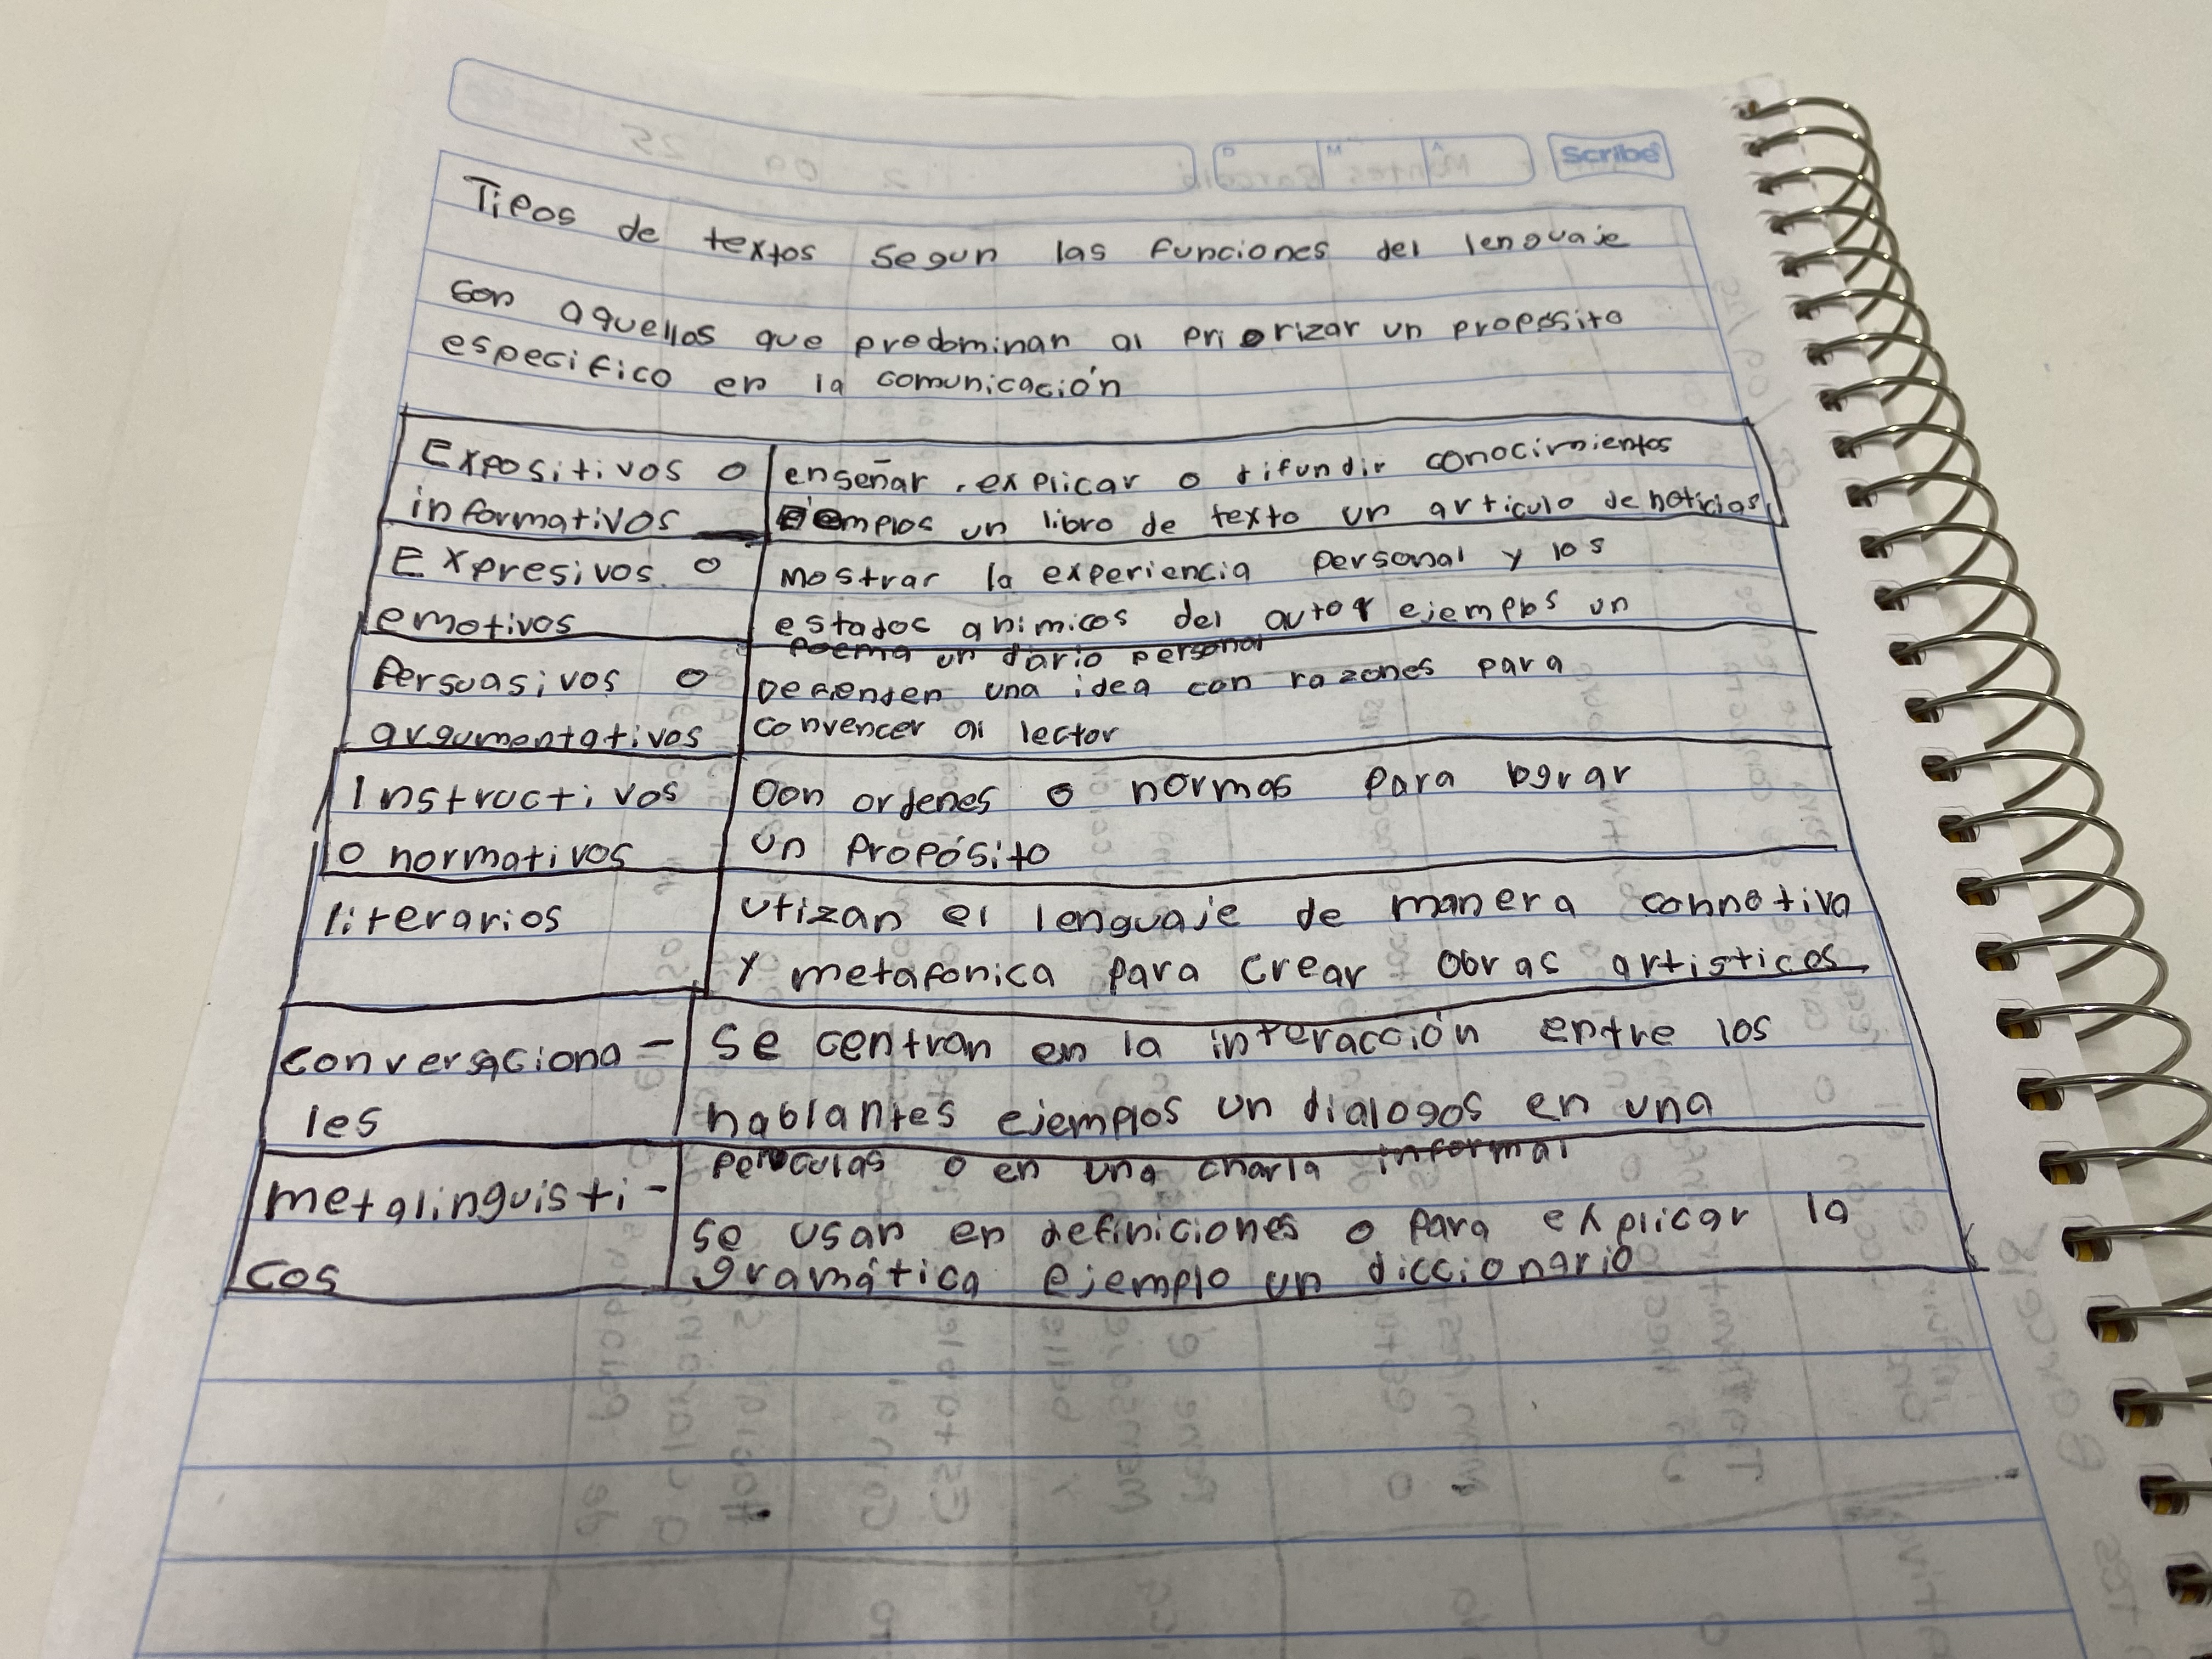 Scribe
Tipos de textos segun las funciones del lenguaje
son aquellos que predominan al priorizar un proposito
especifico en la comunicación
Expositivos o
informativos
enseñar, explicar o difundir conocimientos
Ejemplos un libro de texto un articulo de noticias
Expresivos o
emotivos
mostrar la experiencia personal y los
estados animicos del autor ejemplos un
poema un dario personal
Persuasivos o
argumentativos
Defienden una idea con razones para
convencer al lector
Instructivos
o normativos
Don ordenes o normas para lograr
un propósito
literarios
utizan el lenguaje de manera connotiva
y metafonica para crear obras artisticas
conversaciona-
les
se centran en la interacción entre los
hablantes ejemplos un dialogos en una
peliculas o en una charla informal
metalinguisti-
cos
se usan en definiciones o para explicar la
gramática ejemplo un diccionario